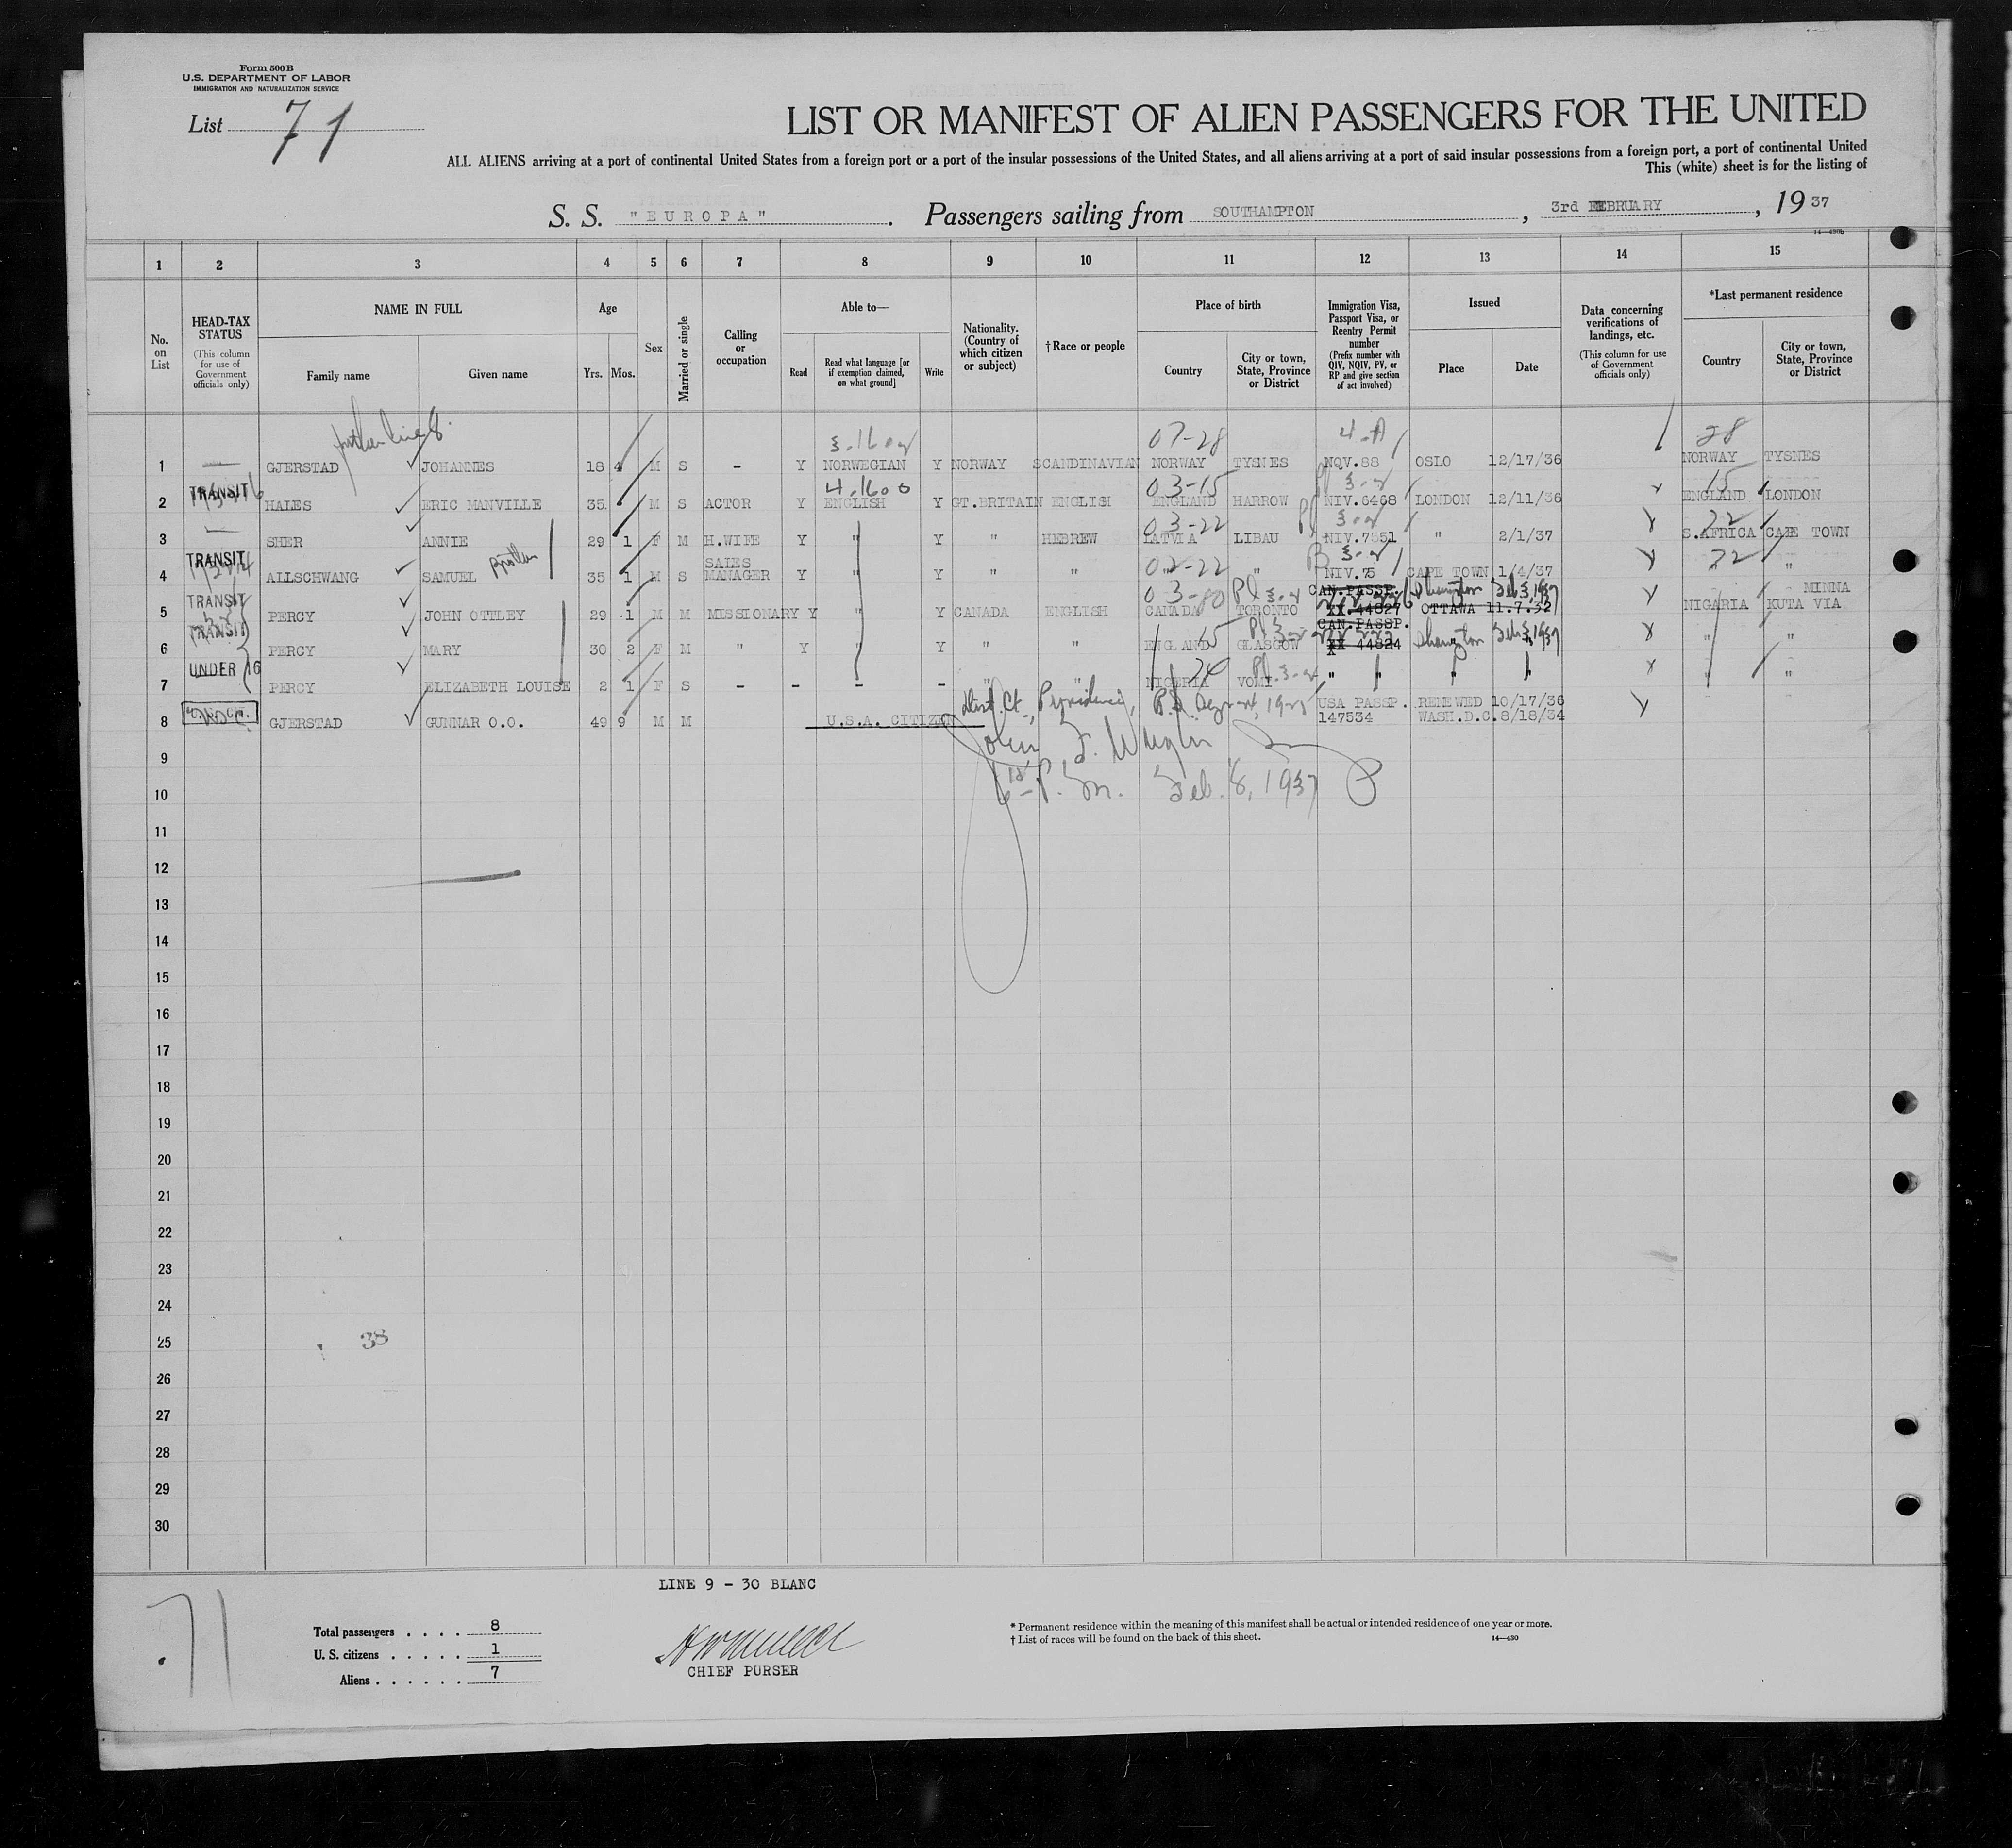 Form 500 B
U.S. DEPARTMENT OF LABOR
IMMIGRATION AND NATURALIZATION SERVICE
List 71
LIST OR MANIFEST OF ALIEN PASSENGERS FOR THE UNITED
ALL ALIENS arriving at a port of continental United States from a foreign port or a port of the insular possessions of the United States, and all aliens arriving at a port of said insular possessions from a foreign port, a port of continental United
This (white) sheet is for the listing of
S. S. "EUROPA". Passengers sailing from SOUTHAMPTON, 3rd FEBRUARY, 19 37
14—430b
1 2 3 4 5 6 7 8 9 10 11 12 13 14 15
No. on List
HEAD-TAX STATUS (This column for use of Government officials only)
NAME IN FULL
Family name Given name
Age
Yrs. Mos.
Sex
Married or single
Calling or occupation
Able to—
Read
Read what language [or if exemption claimed, on what ground]
Write
Nationality. (Country of which citizen or subject)
†Race or people
Place of birth
Country
City or town, State, Province or District
Immigration Visa, Passport Visa, or Reentry Permit number (Prefix number with QIV, NQIV, PV, or RP and give section of act involved)
Issued
Place Date
Data concerning verifications of landings, etc. (This column for use of Government officials only)
*Last permanent residence
Country
City or town, State, Province or District
07-28 4-A 28
1 — GJERSTAD JOHANNES 18 4 M S - Y NORWEGIAN Y NORWAY SCANDINAVIAN NORWAY TYSNES NQV.88 OSLO 12/17/36 NORWAY TYSNES
03-15 15
2 TRANSIT HALES ERIC MANVILLE 35 M S ACTOR Y ENGLISH Y GT.BRITAIN ENGLISH ENGLAND HARROW NIV.6468 LONDON 12/11/36 ENGLAND LONDON
03-22 22
3 — SHER ANNIE 29 1 F M H.WIFE Y " Y " HEBREW LATVIA LIBAU NIV.7551 " 2/1/37 S.AFRICA CAPE TOWN
02-22 22
4 TRANSIT ALLSCHWANG SAMUEL 35 1 M S SALES MANAGER Y " Y " " " " NIV.75 CAPE TOWN 1/4/37 " "
5 TRANSIT PERCY JOHN OTTLEY 29 1 M M MISSIONARY Y " Y CANADA ENGLISH CANADA TORONTO CAN.PASSP. XX 44827 OTTAWA 11.7.32 NIGARIA MINNA KUTA VIA
6 TRANSIT PERCY MARY 30 2 F M " Y " Y " " ENGLAND GLASGOW CAN.PASSP. XX 44824 " " " "
7 UNDER 16 PERCY ELIZABETH LOUISE 2 1 F S - - - - " " NIGERIA VOMI " " " " " "
8 GJERSTAD GUNNAR O.O. 49 9 M M U.S.A. CITIZEN Dist. Ct., Providence, USA PASSP. 147534 RENEWED 10/17/36 WASH.D.C. 8/18/34
9
10 Feb. 8, 1937
11
12
13
14
15
16
17
18
19
20
21
22
23
24
25 38
26
27
28
29
30
LINE 9 - 30 BLANC
71
Total passengers . . . . 8
U. S. citizens . . . . . 1
Aliens . . . . . . 7
CHIEF PURSER
* Permanent residence within the meaning of this manifest shall be actual or intended residence of one year or more.
† List of races will be found on the back of this sheet.
14—430